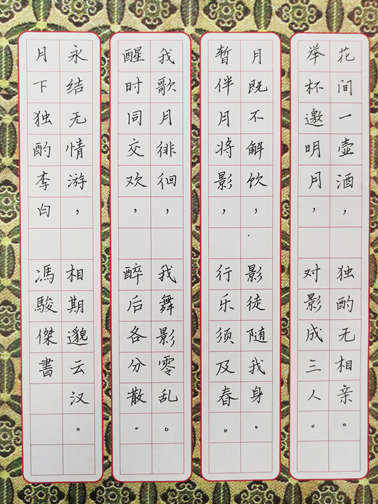 花间一壶酒，独酌无相亲。
举杯邀明月，对影成三人。
月既不解饮，影徒随我身。
暫伴月将影，行乐须及春。
我歌月徘徊，我舞影零乱。
醒时同交欢，醉后各分散。
永结无情游，相期邈云汉。
月下独酌李白 馮駿傑書